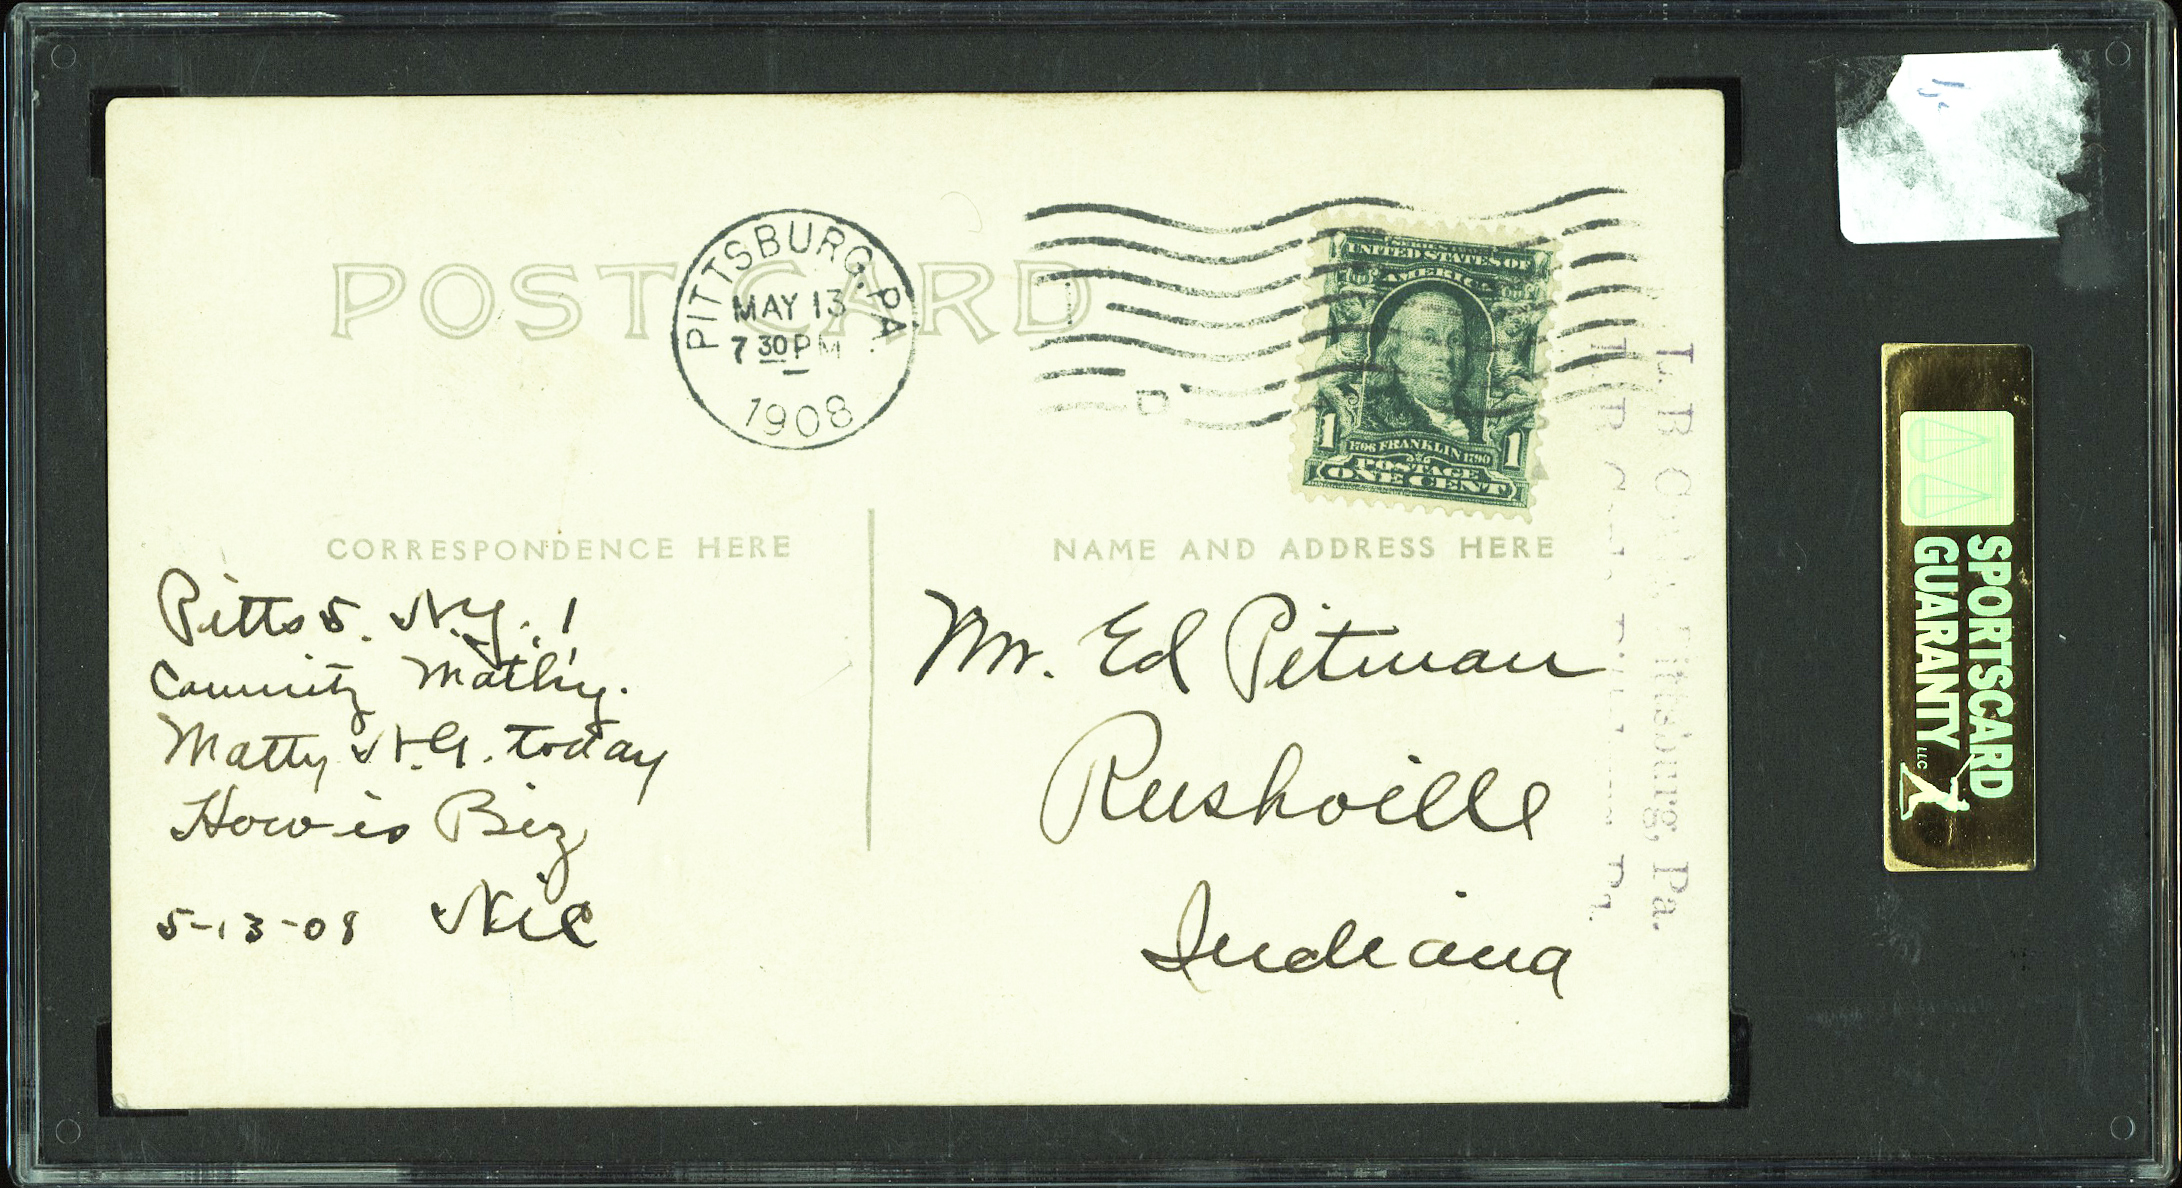 POST CARD
PITTSBURG, PA.
MAY 13
7 30 P M
1908
D
SERIES 1902
UNITED STATES OF
AMERICA
1706 FRANKLIN 1790
1 1
POSTAGE
ONE CENT
CORRESPONDENCE HERE
Pitts 5. N.Y. 1
Camnitz Mathy.
Matty N.G. today
How is Biz
5-13-08 Nic
NAME AND ADDRESS HERE
Mr. Ed Pitman
Rushville
Indiana
Pittsburg, Pa.
SPORTSCARD
GUARANTY LLC